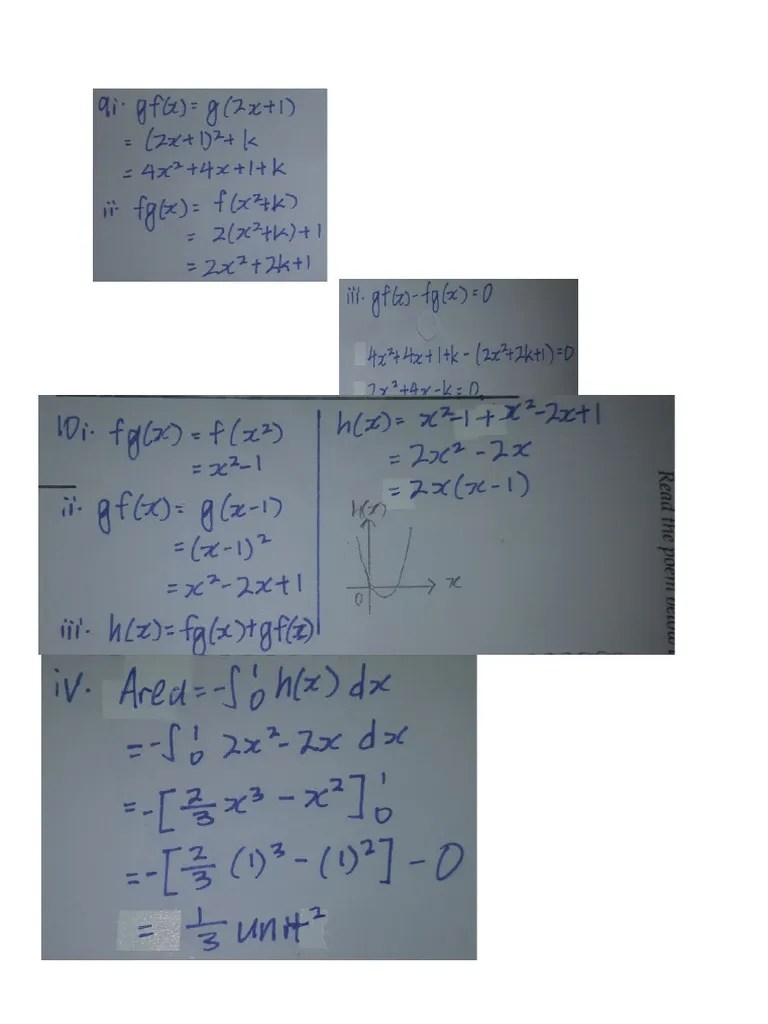 9i. gf(x) = g(2x+1)
= (2x+1)²+k
= 4x²+4x+1+k
ii fg(x) = f(x²+k)
= 2(x²+k)+1
= 2x²+2k+1
iii. gf(x)-fg(x)=0
4x²+4x+1+k-(2x²+2k+1)=0
2x²+4x-k=0
10i. fg(x) = f(x²)
= x²-1
ii. gf(x) = g(x-1)
= (x-1)²
= x²-2x+1
iii. h(x) = fg(x)+gf(x)
h(x) = x²-1+x²-2x+1
= 2x²-2x
= 2x(x-1)
h(x)
0
x
Read the poem below
iv. Area = -∫₀¹ h(x) dx
= -∫₀¹ 2x²-2x dx
= -[2/3 x³ - x²]₀¹
= -[2/3 (1)³ - (1)²] - 0
= 1/3 unit²